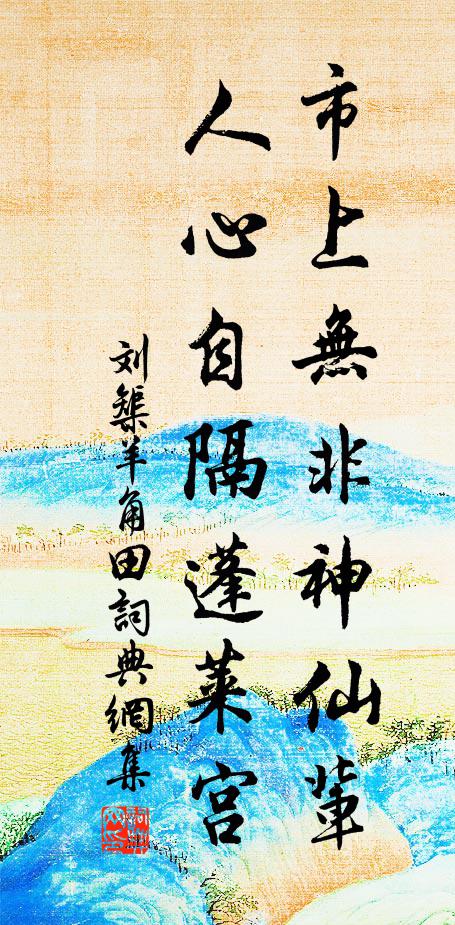 市上無非神仙輩
人心自隔蓬莱宫
刘槩羊角田詞典網集